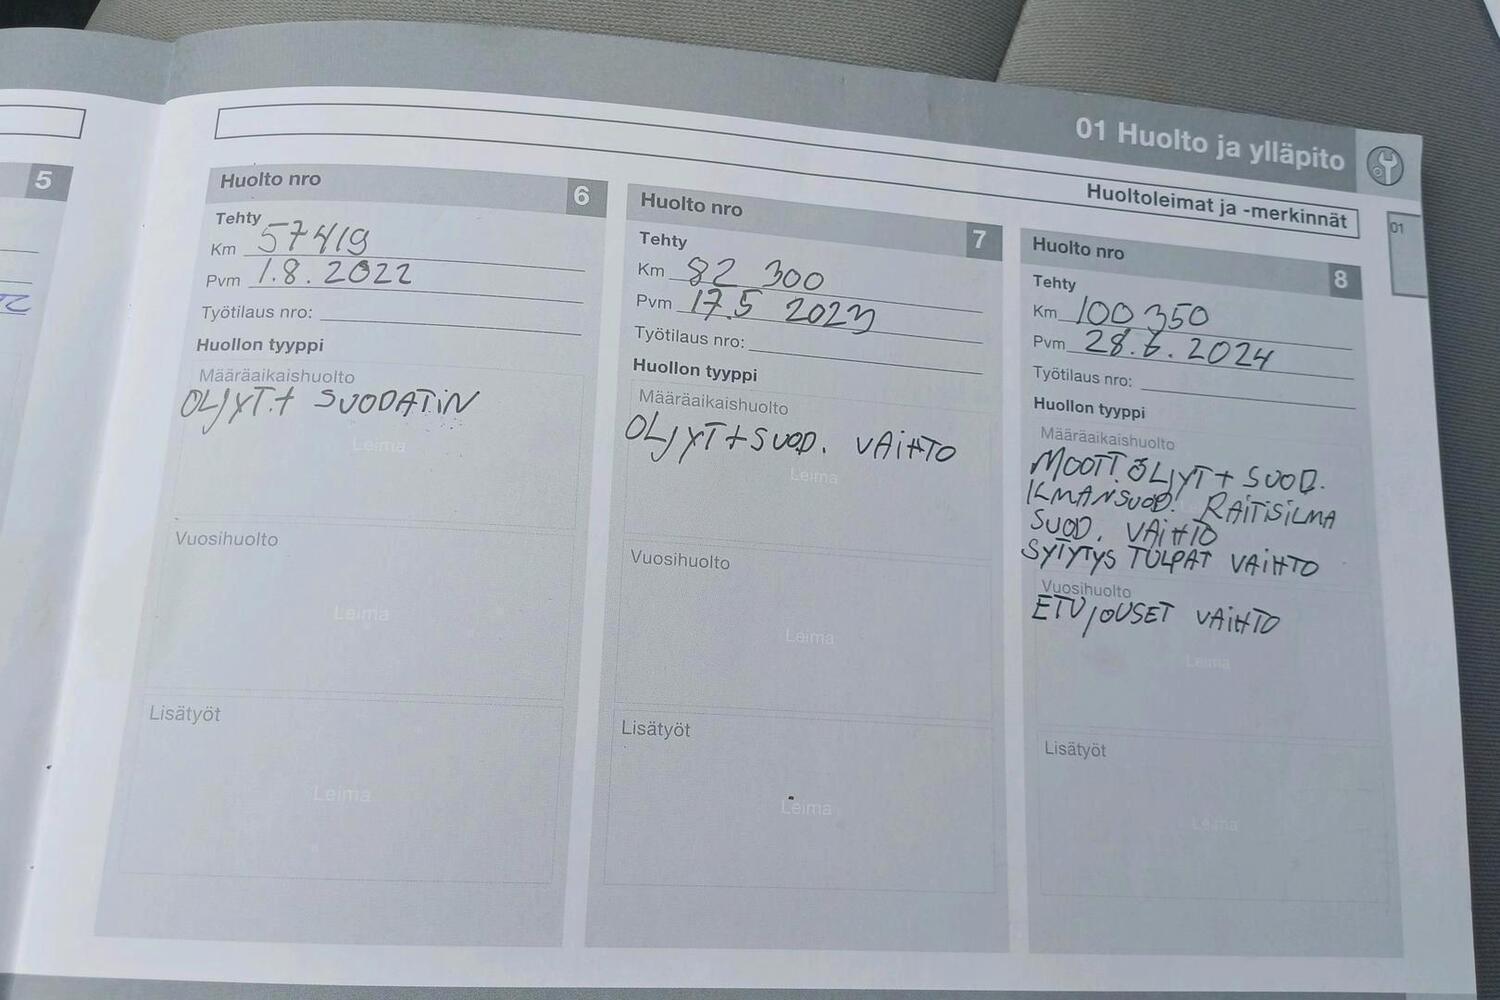 01 Huolto ja ylläpito
Huoltoleimat ja -merkinnät
01
5
Huolto nro 6
Tehty
Km 57419
Pvm 1.8.2022
Työtilaus nro:
Huollon tyyppi
Määräaikaishuolto
OLJYT.+ SUODATIN
Leima
Vuosihuolto
Leima
Lisätyöt
Leima
Huolto nro 7
Tehty
Km 82 300
Pvm 17.5 2023
Työtilaus nro:
Huollon tyyppi
Määräaikaishuolto
OLJYT+SUOD. VAIHTO
Leima
Vuosihuolto
Leima
Lisätyöt
Leima
Huolto nro 8
Tehty
Km 100 350
Pvm 28.6.2024
Työtilaus nro:
Huollon tyyppi
Määräaikaishuolto
MOOTT.ÖLJYT+ SUOD.
ILMANSUOD. RAITISILMA
SUOD. VAIHTO
SYTYTYS TULPAT VAIHTO
Vuosihuolto
ETUJOUSET VAIHTO
Leima
Lisätyöt
Leima